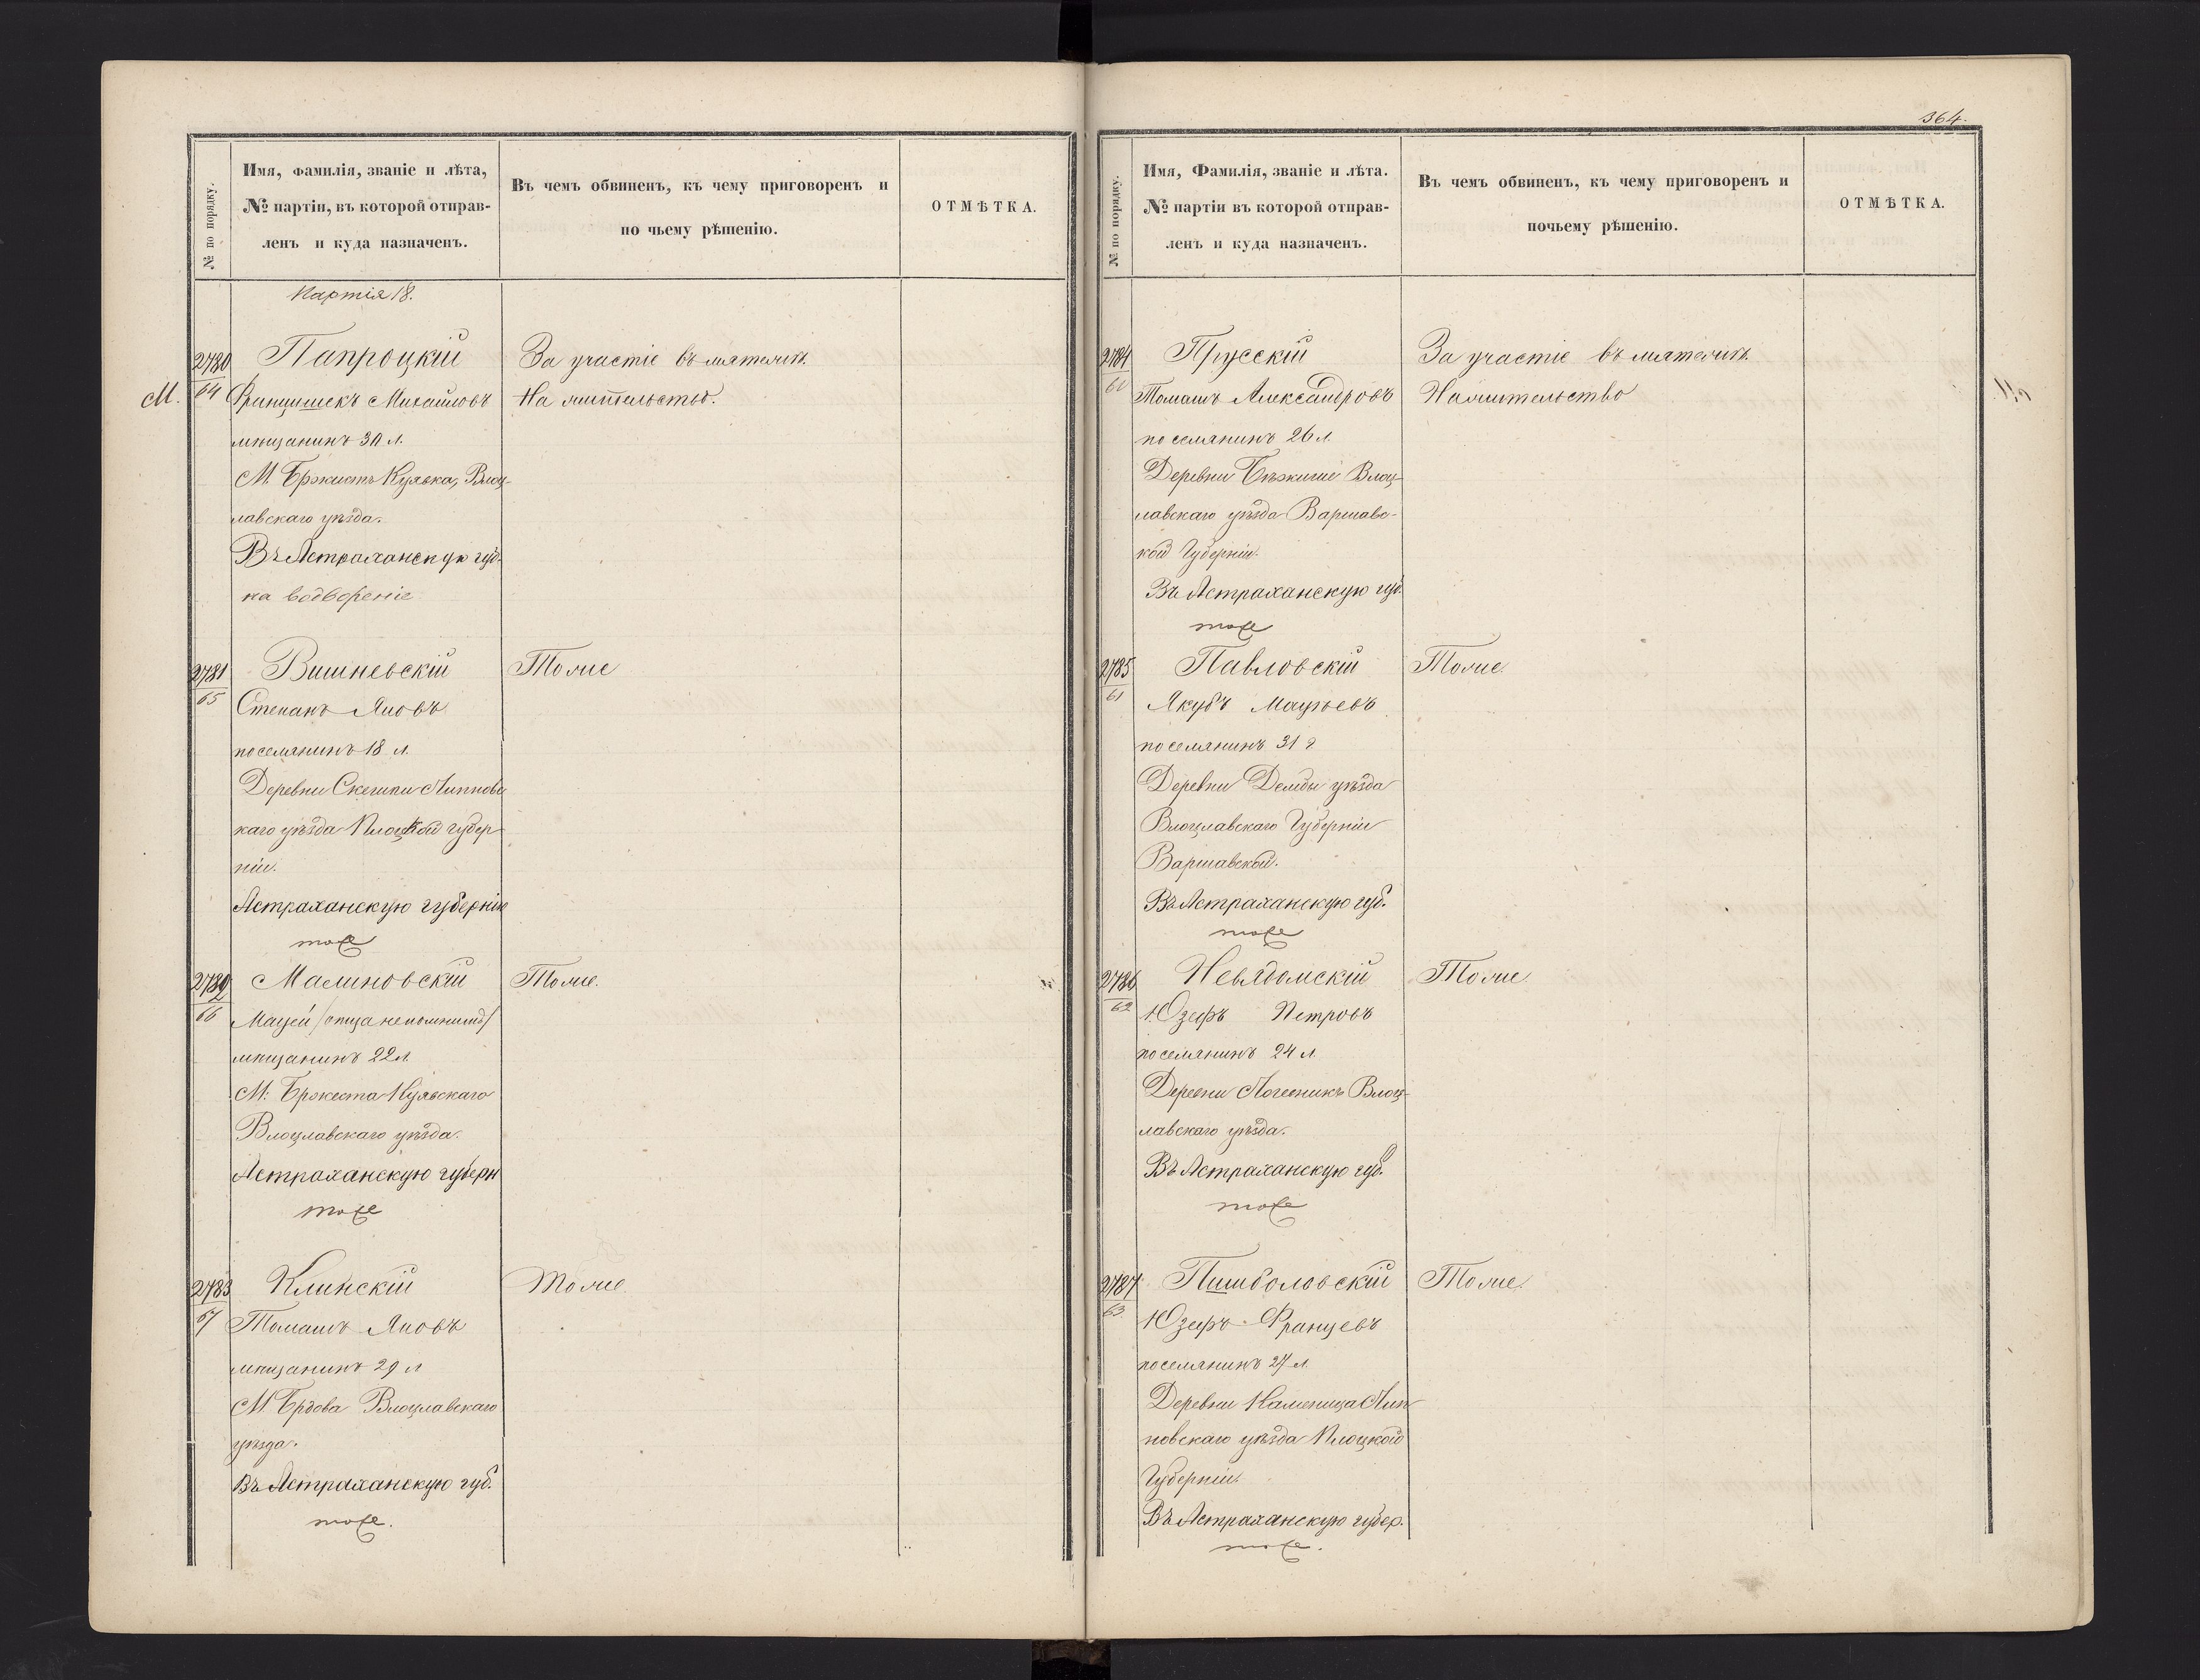 364.
№ по порядку.
Имя, фамилія, званіе и лѣта,
№ партіи, въ которой отправ-
ленъ и куда назначенъ.
Въ чемъ обвиненъ, къ чему приговоренъ и
по чьему рѣшенію.
ОТМѢТКА.
Партія 18.
2780 Папроцкій За участіе въ мятежѣ.
М. 64 Францишекъ Михайловъ На жительство.
мѣщанинъ 30 л.
М. Бржисть Куявка, Влоц-
лавскаго уѣзда.
Въ Астраханскую губ.
на водвореніе
2781 Вишневскій Тоже
65 Степанъ Яновъ
поселянинъ 18 л.
Деревни Скешки Липновс
каго уѣзда Плоцкой губер
ніи.
Астраханскую губернію
тоже
2782 Малиновскій Тоже.
66 Мацей /отца непомнитъ/
мѣщанинъ 22 л
М: Бржеста Куявскаго
Влоцлавскаго уѣзда.
Астраханскую губерн
тоже
2783 Клинскій Тоже
67 Томашъ Яновъ
мѣщанинъ 29 л
М. Брдова Влоцлавскаго
уѣзда.
Въ Астраханскую губ.
тоже.
№ по порядку.
Имя, Фамилія, званіе и лѣта.
№ партіи въ которой отправ-
ленъ и куда назначенъ.
Въ чемъ обвиненъ, къ чему приговоренъ и
почьему рѣшенію.
ОТМѢТКА.
2784 Прусскій За участіе въ мятежѣ
60 Томашъ Александровъ На жительство
поселянинъ 26 л.
Деревни Влоц-
лавскаго уѣзда Варшавс-
кой Губерніи.
Въ Астраханскую губ.
тоже
2785 Павловскій Тоже.
61 Якубъ Мацѣевъ
поселянинъ 31 г
Деревни Дембы уѣзда
Влоцлавскаго Губерніи
Варшавской.
Въ Астраханскую губ.
тоже
2786 Невядомскій Тоже
62 Юзефъ Петровъ
поселянинъ 24 л.
Деревни Влоц-
лавскаго уѣзда.
Въ Астраханскую губ.
тоже
2787 Пишболовскій Тоже.
63 Юзефъ Францевъ
поселянинъ 27 л.
Деревни Каменица Лип
новскаго уѣзда Плоцкой
Губерніи.
Въ Астраханскую губер.
тоже.